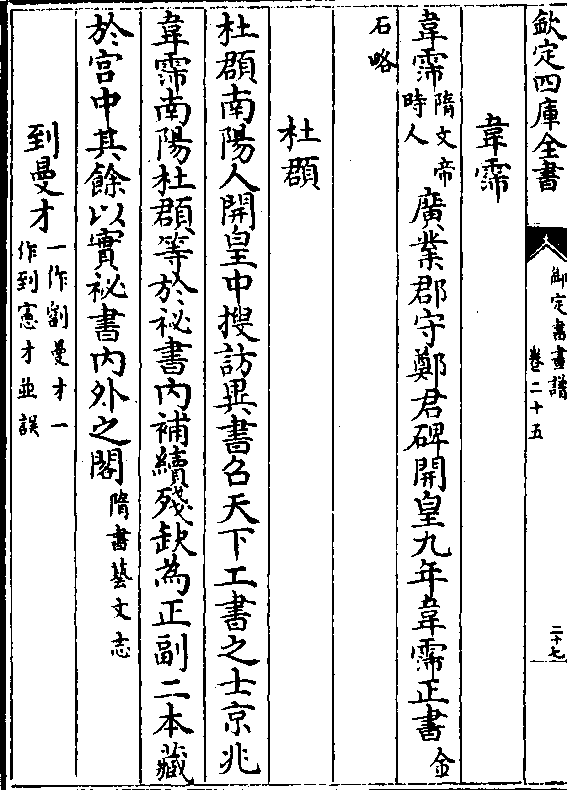 欽定四庫全書
御定書畫譜
卷二十五
二十七
韋霈
韋霈隋文帝時人廣業郡守鄭君碑開皇九年韋霈正書金
石略
杜頵
杜頵南陽人開皇中搜訪異書召天下工書之士京兆
韋霈南陽杜頵等於祕書內補續殘缺為正副二本藏
於宮中其餘以實祕書內外之閣隋書藝文志
到曼才一作劉曼才一作到憲才並誤